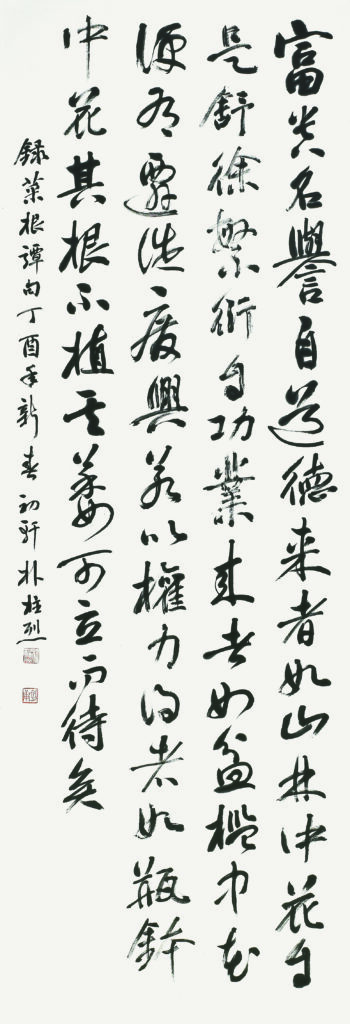 富貴名譽自道德来者如山林中花自
是舒徐繁衍自功業来者如盆檻中花
便有遷徙廢興若以權力得者如瓶鉢
中花其根不植其萎可立而待矣
録菜根譚句丁酉年新春初朴柱烈